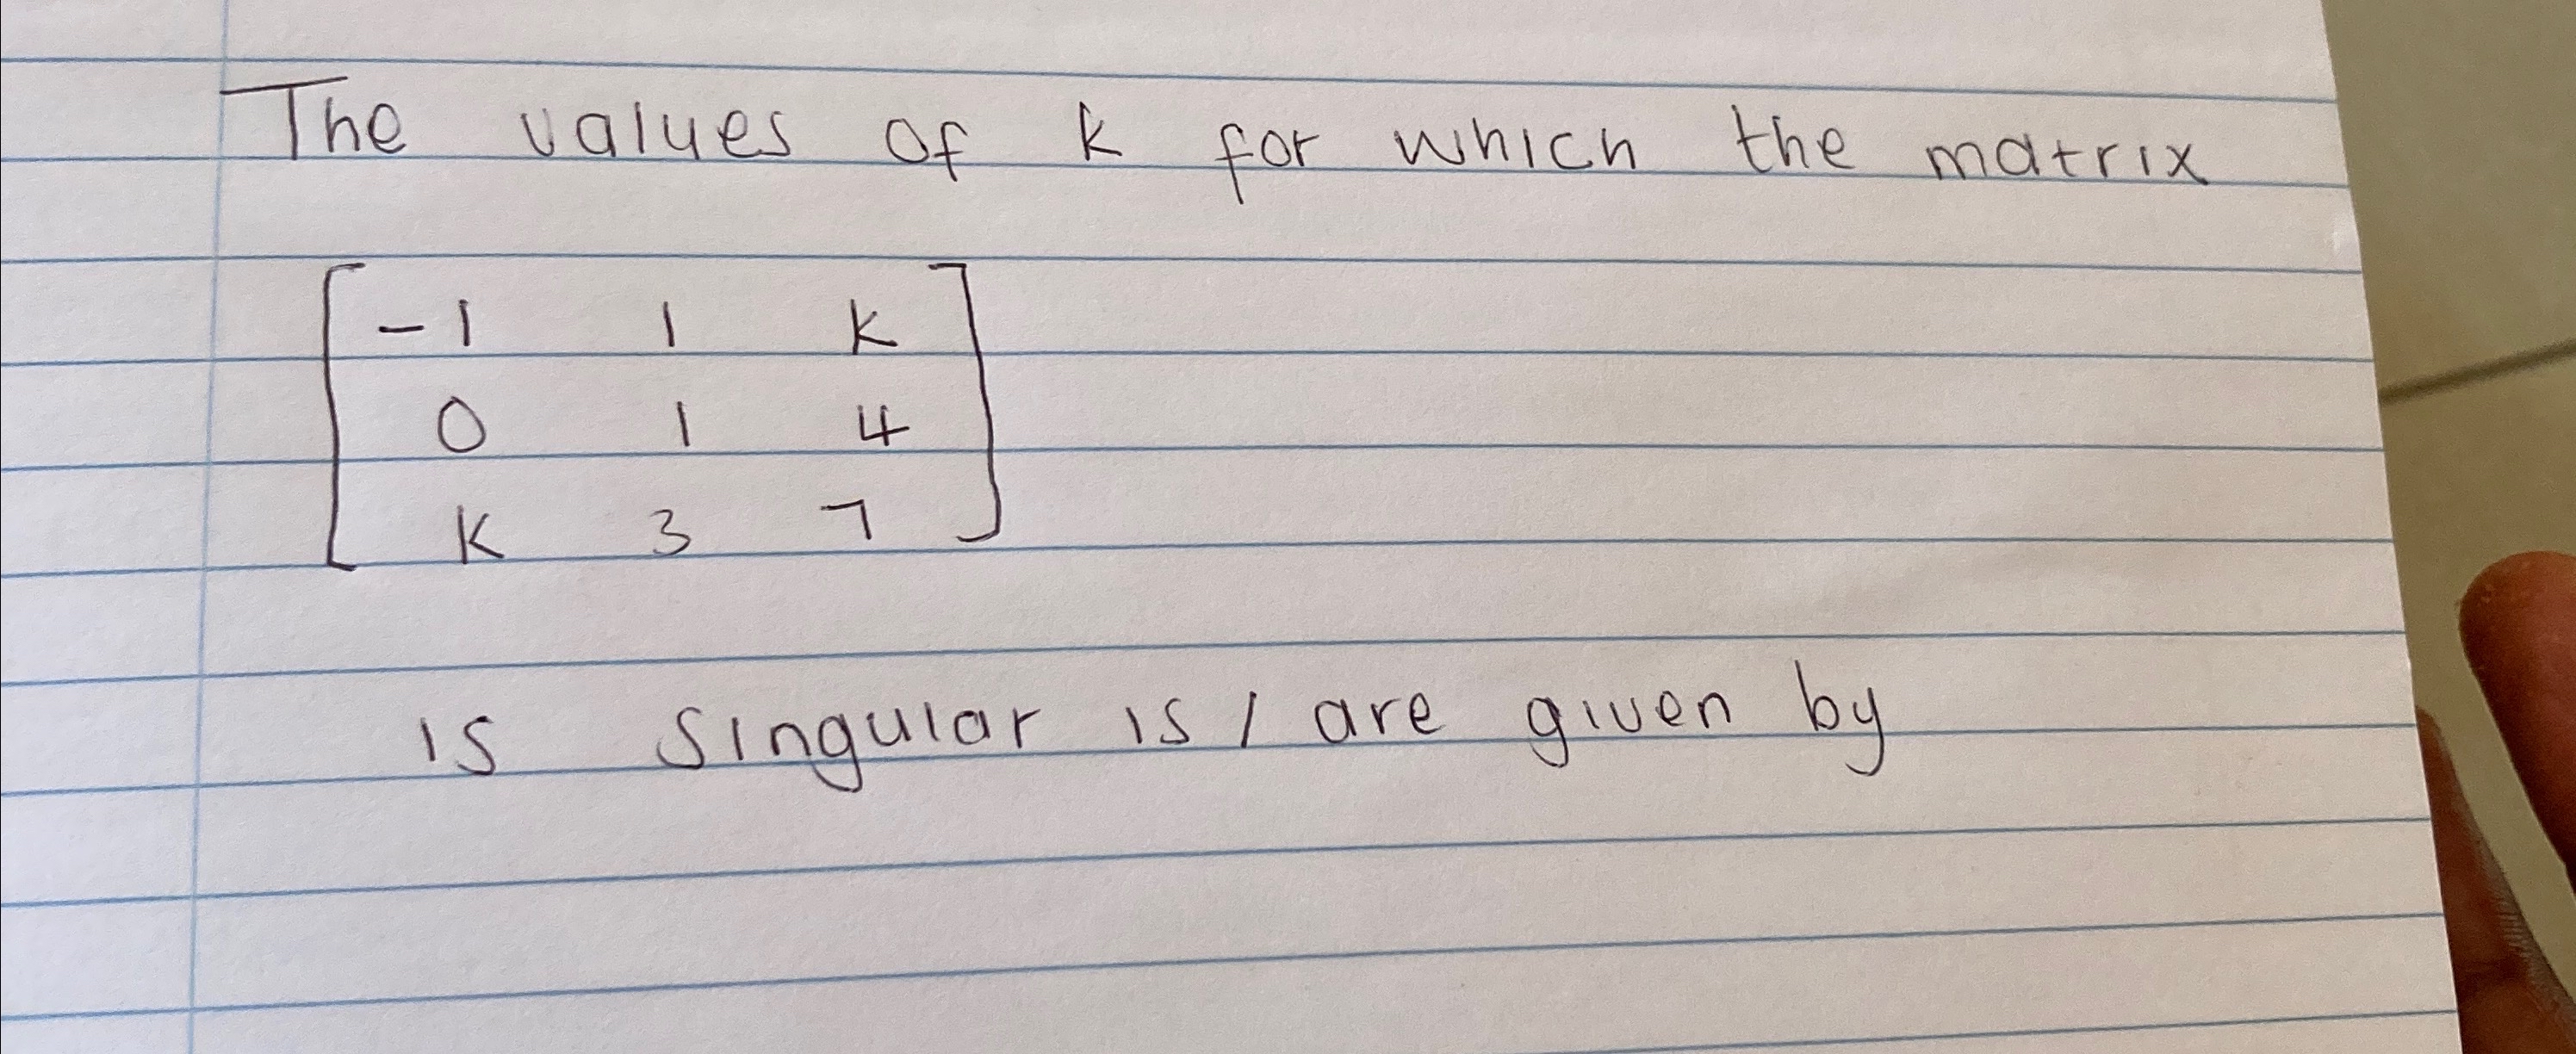 The values of k for which the matrix
-1 1 k
0 1 4
k 3 7
is singular is / are given by